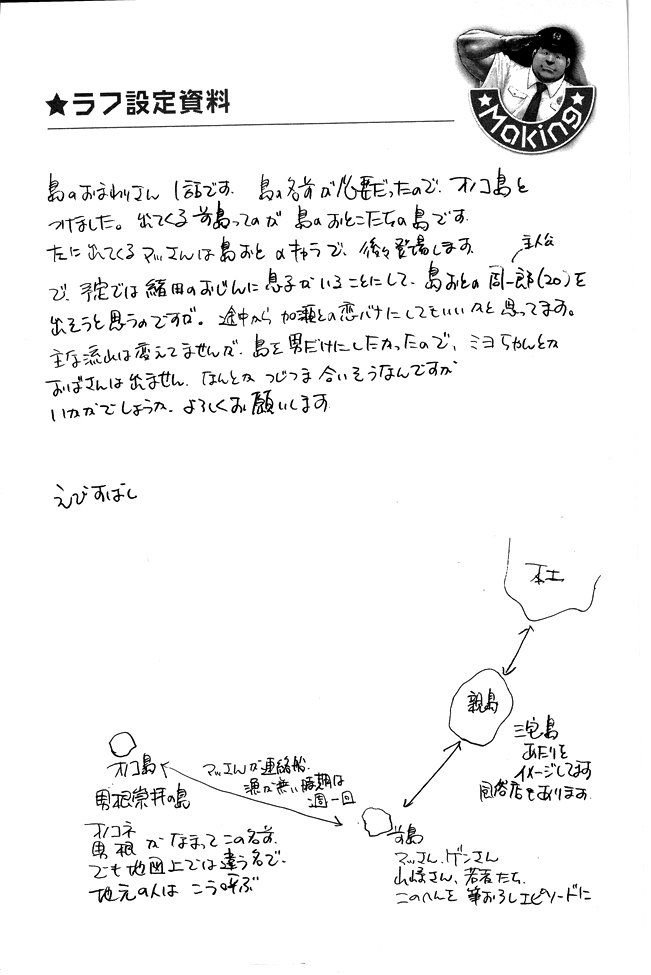 ★ラフ設定資料
Making
島のおまわりさん 1話です. 島の名前が必要だったので、オノコ島と
つけました。出てくる前島ってのが 島のおとこたちの島です.
たに出てくるマッさんは島おと のキャラで、後々登場します.
主人公
で、予定では緒田のおじんに息子がいることにして、島おとの周一郎(20)を
出そうと思うのですが。途中から加瀬との恋バナにしてもいいかと思ってます。
主な流れは変えてませんが、島を男だけにしたかったので、ミヨちゃんとか
おばさんは出ません. なんとか つじつま合いそうなんですが
いかがでしょうか. よろしくお願いします.
えびすばし
本土
親島
三宅島
あたりを
イメージしてます
風俗店もあります.
オノコ島
マッさんが連絡船.
漁が無い時期は
週一回
男根崇拝の島
オノコネ
男根 がなまってこの名前.
でも地図上では違う名で.
地元の人は こう呼ぶ
前島
マッさん、ゲンさん
山崎さん、若者たち.
このへんを 筆おろしエピソードに